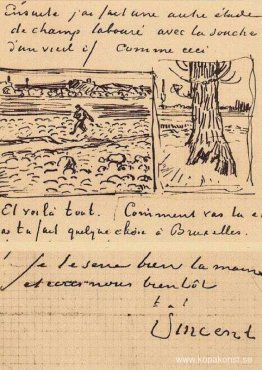 Ensuite j'ai fait une autre étude
de champs labouré avec la souche
d'un vieil if Comme ceci
Et voilà tout. Comment vas tu et
as tu fait quelque chose à Bruxelles.
je te serre bien la main
et écris nous bientôt
t. à t.
Vincent
www.kopakonst.se